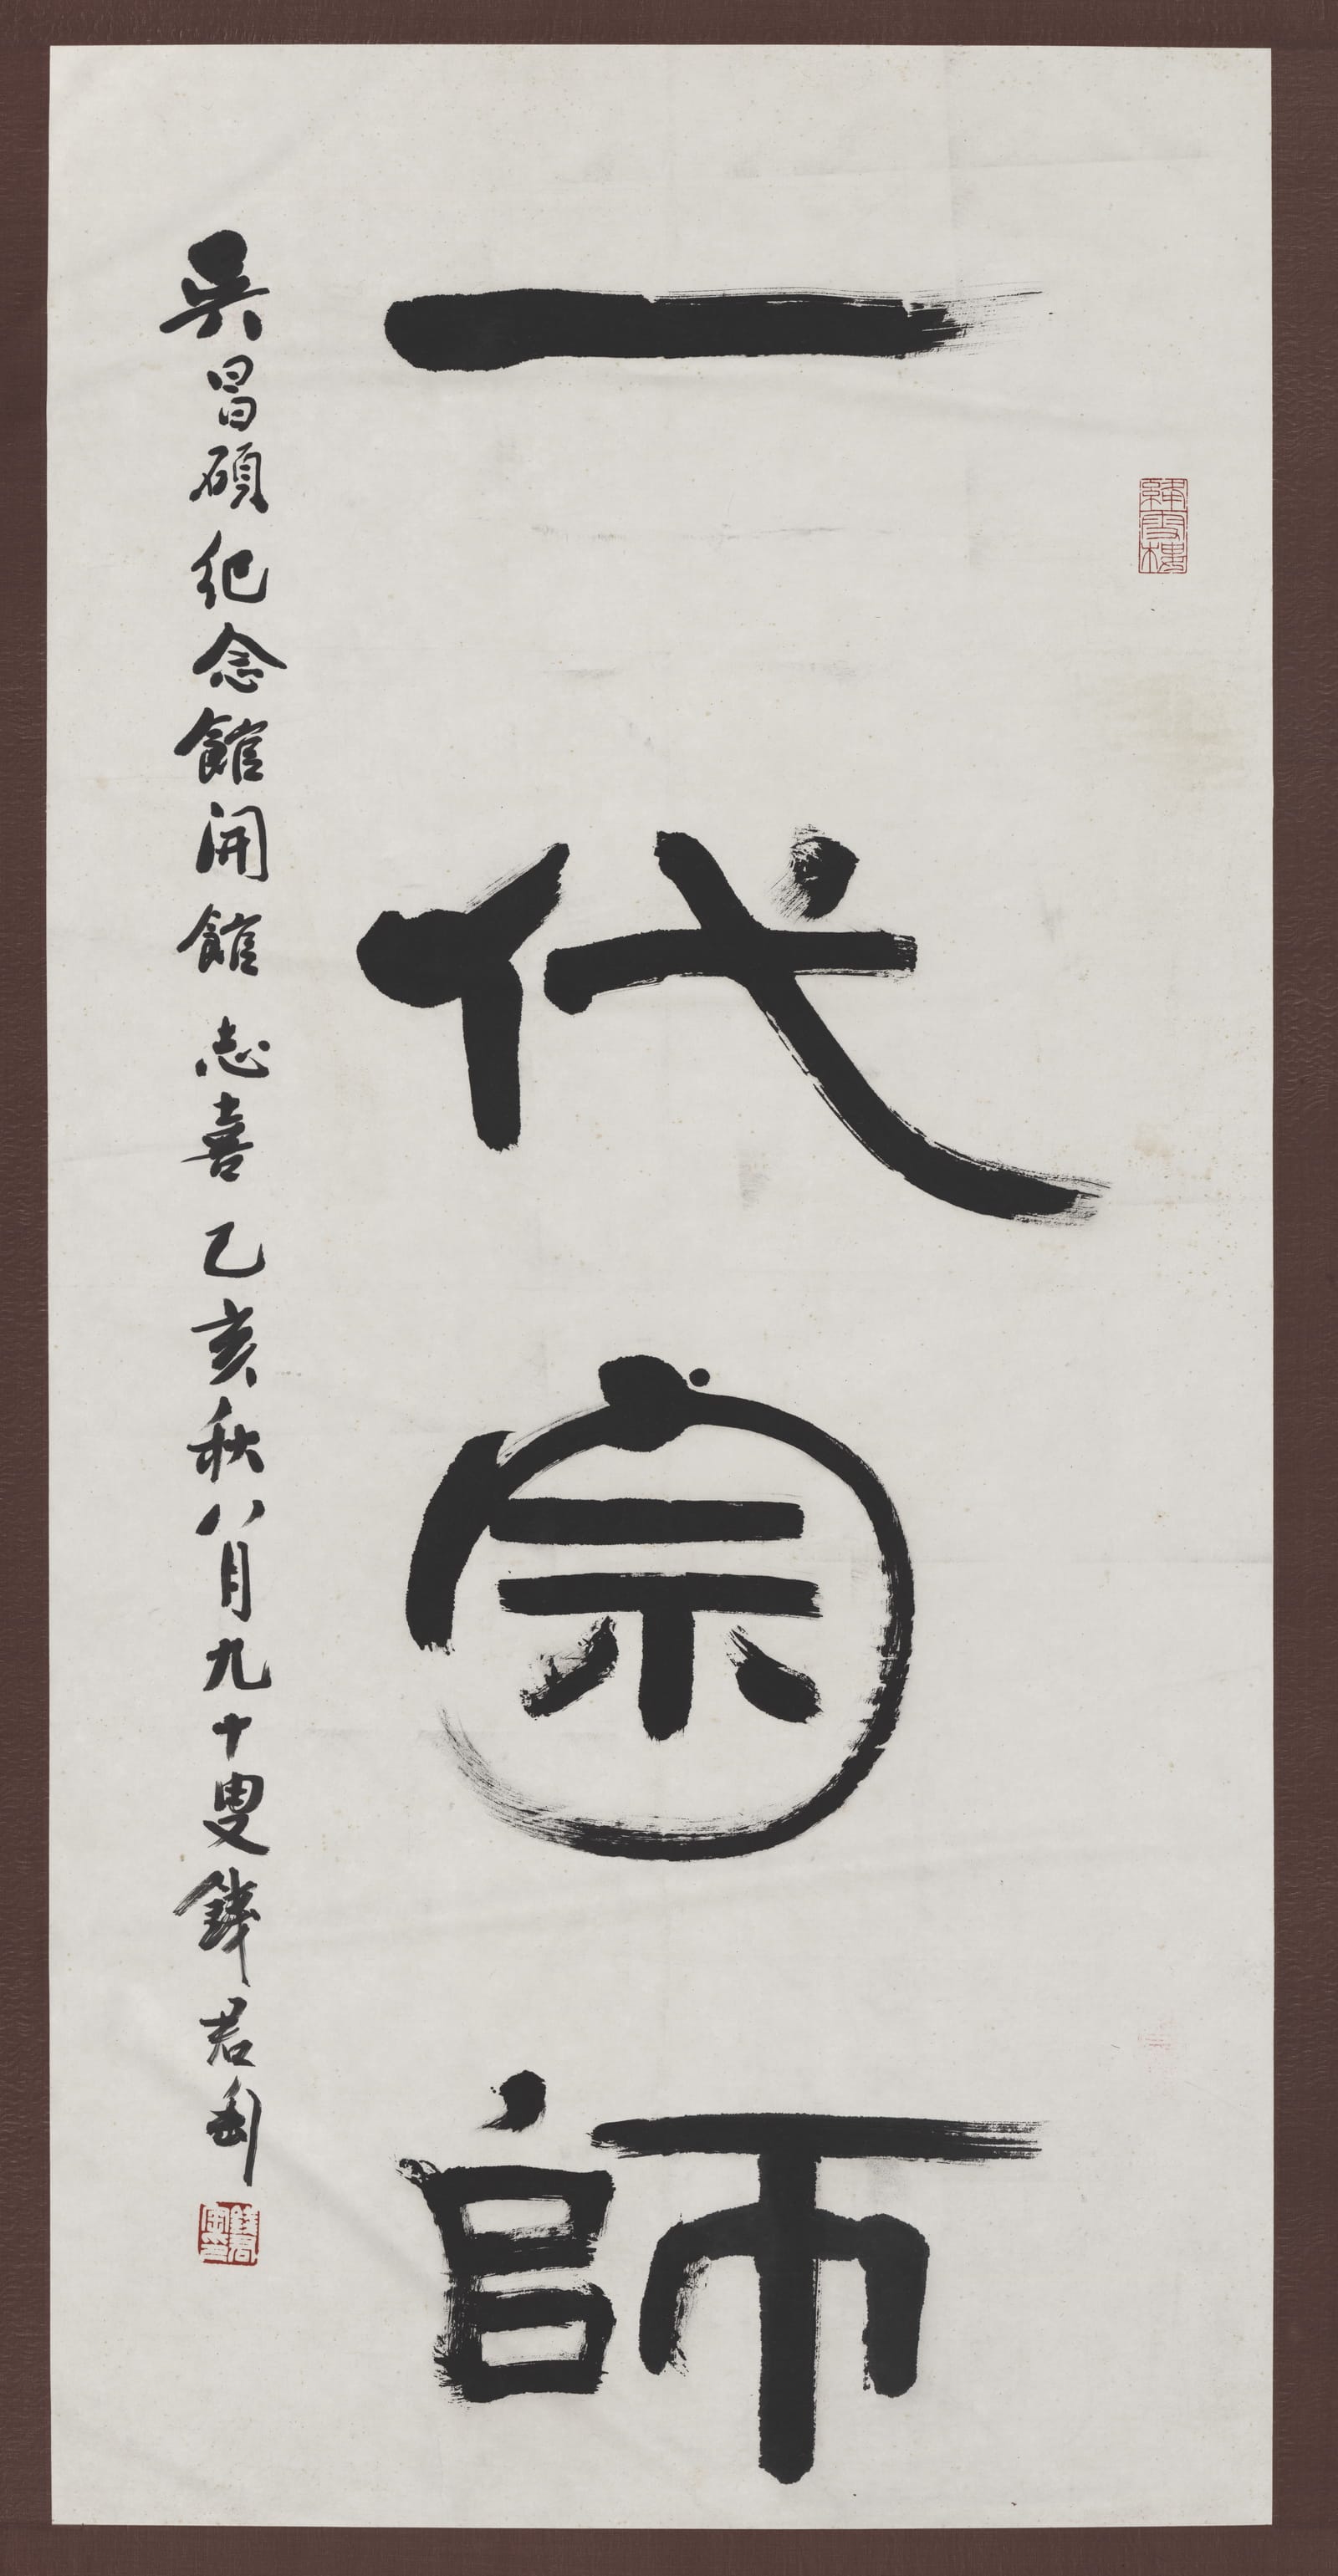 一代宗師
吳昌碩紀念館開館 志喜 乙亥秋八月九十叟錢君匋